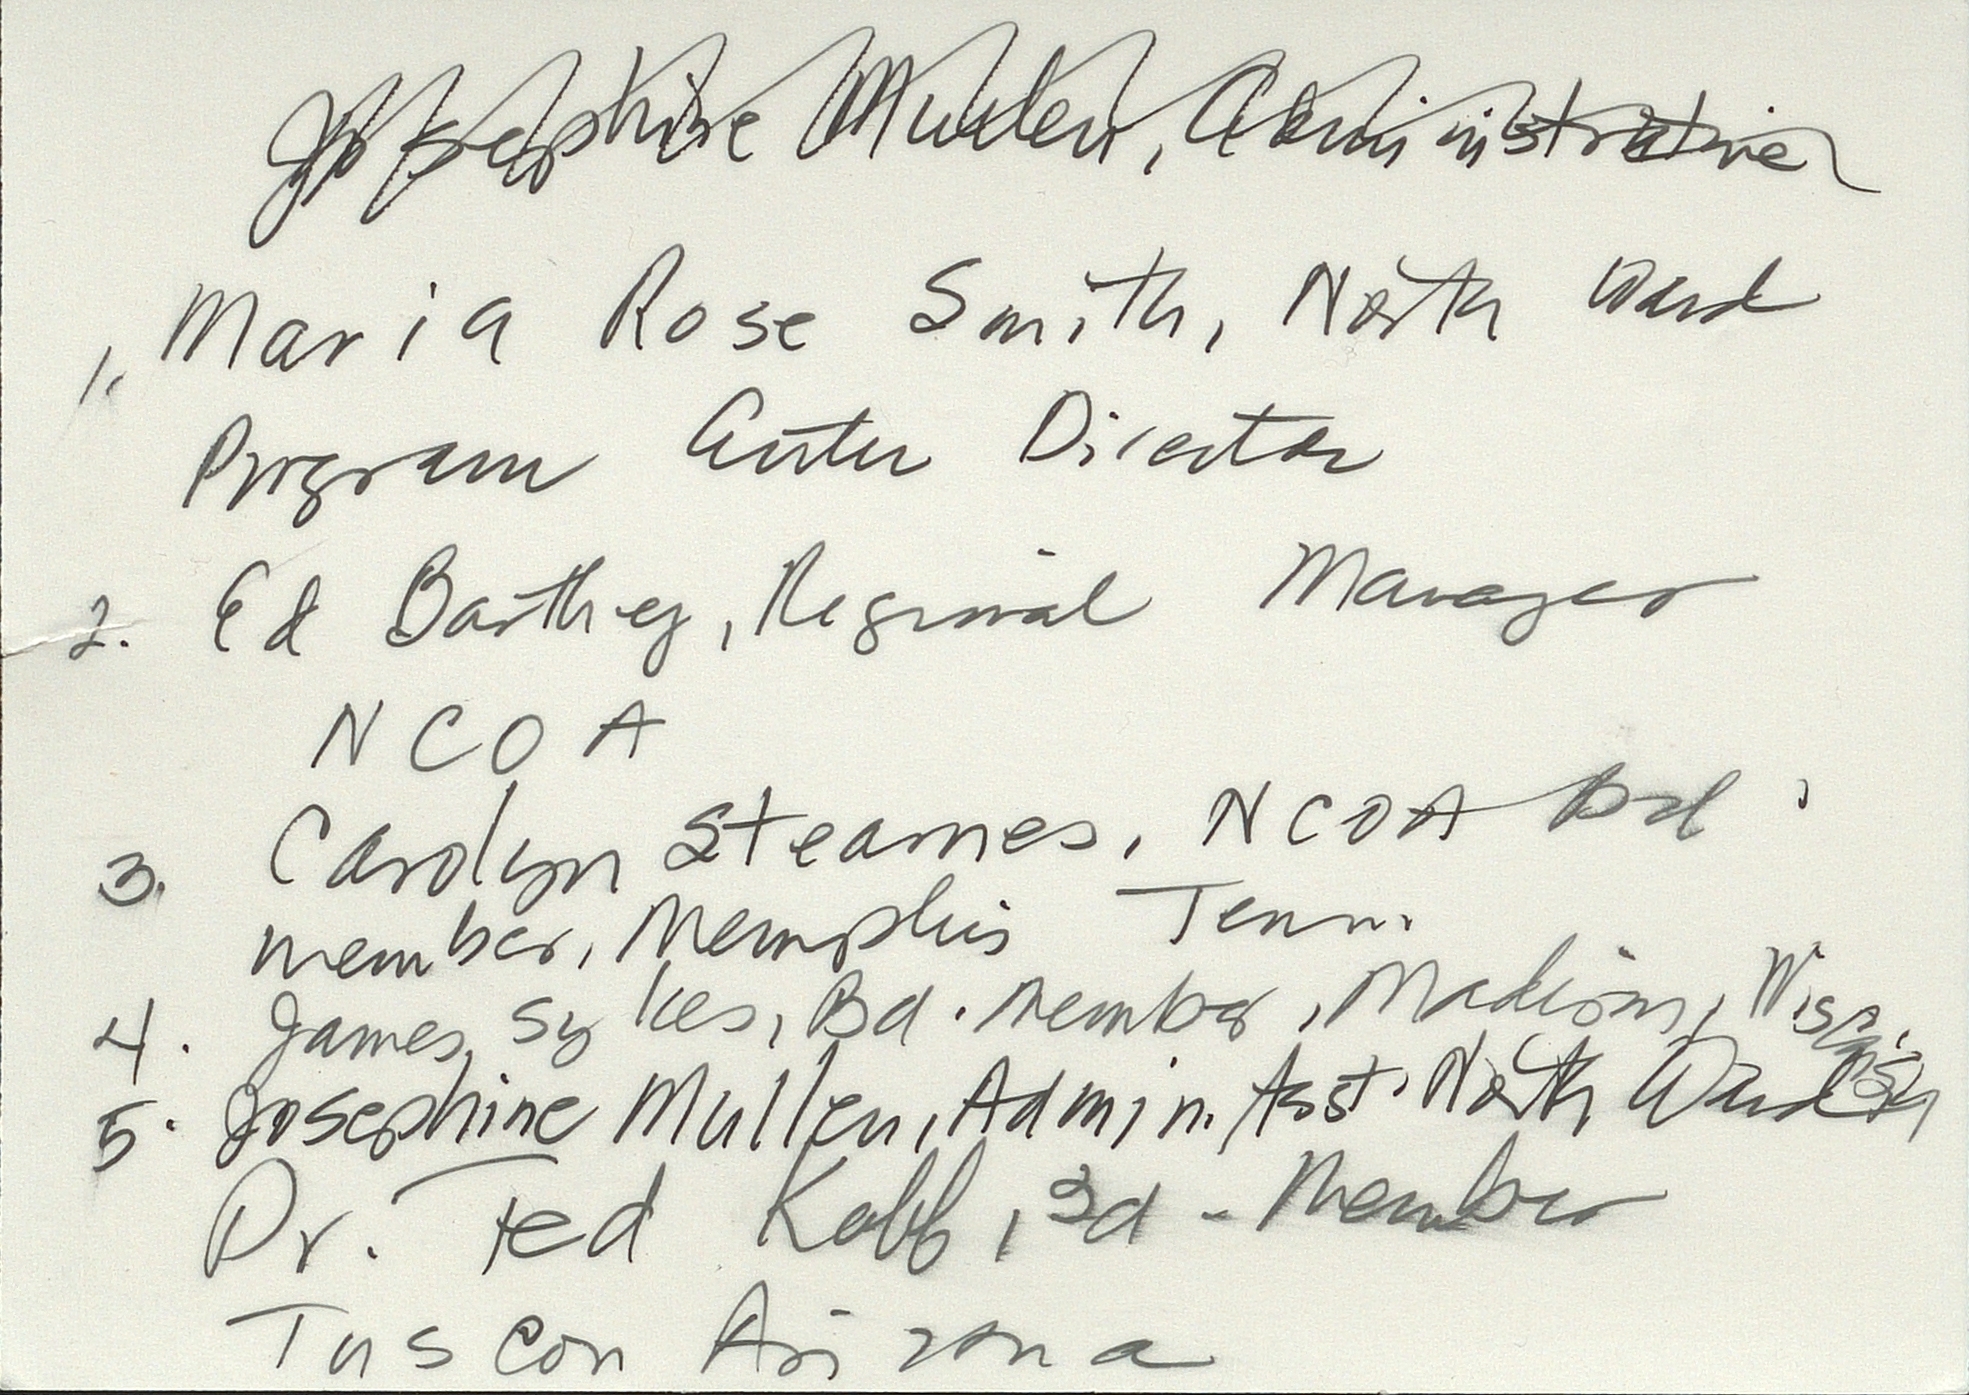 Josephine Mullen, Administrative
1. Maria Rose Smith, North Ward
Program Center Director
2. Ed Barthey, Regional Manager
NCOA
3. Carolyn Stearnes, NCOA Bd
member, Memphis Tenn.
4. James Sykes, Bd. member, Madison, Wisc.
5. Josephine Mullen, Admin. Asst. North Ward
Dr. Ted Kobb, Bd - Member
Tuscon Arizona